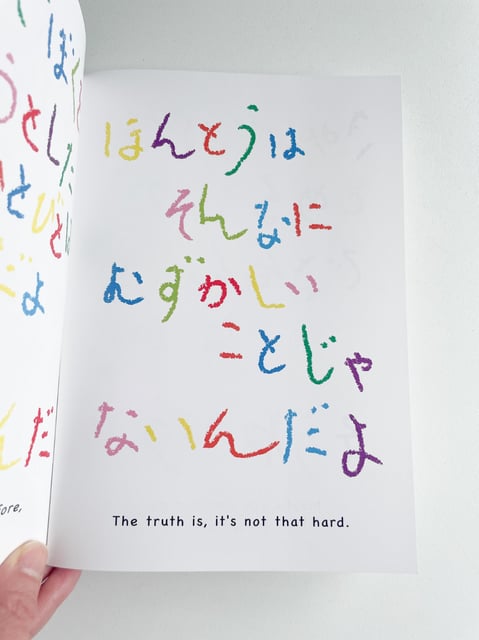 ほんとうは
そんなに
むずかしい
ことじゃ
ないんだよ
The truth is, it's not that hard.